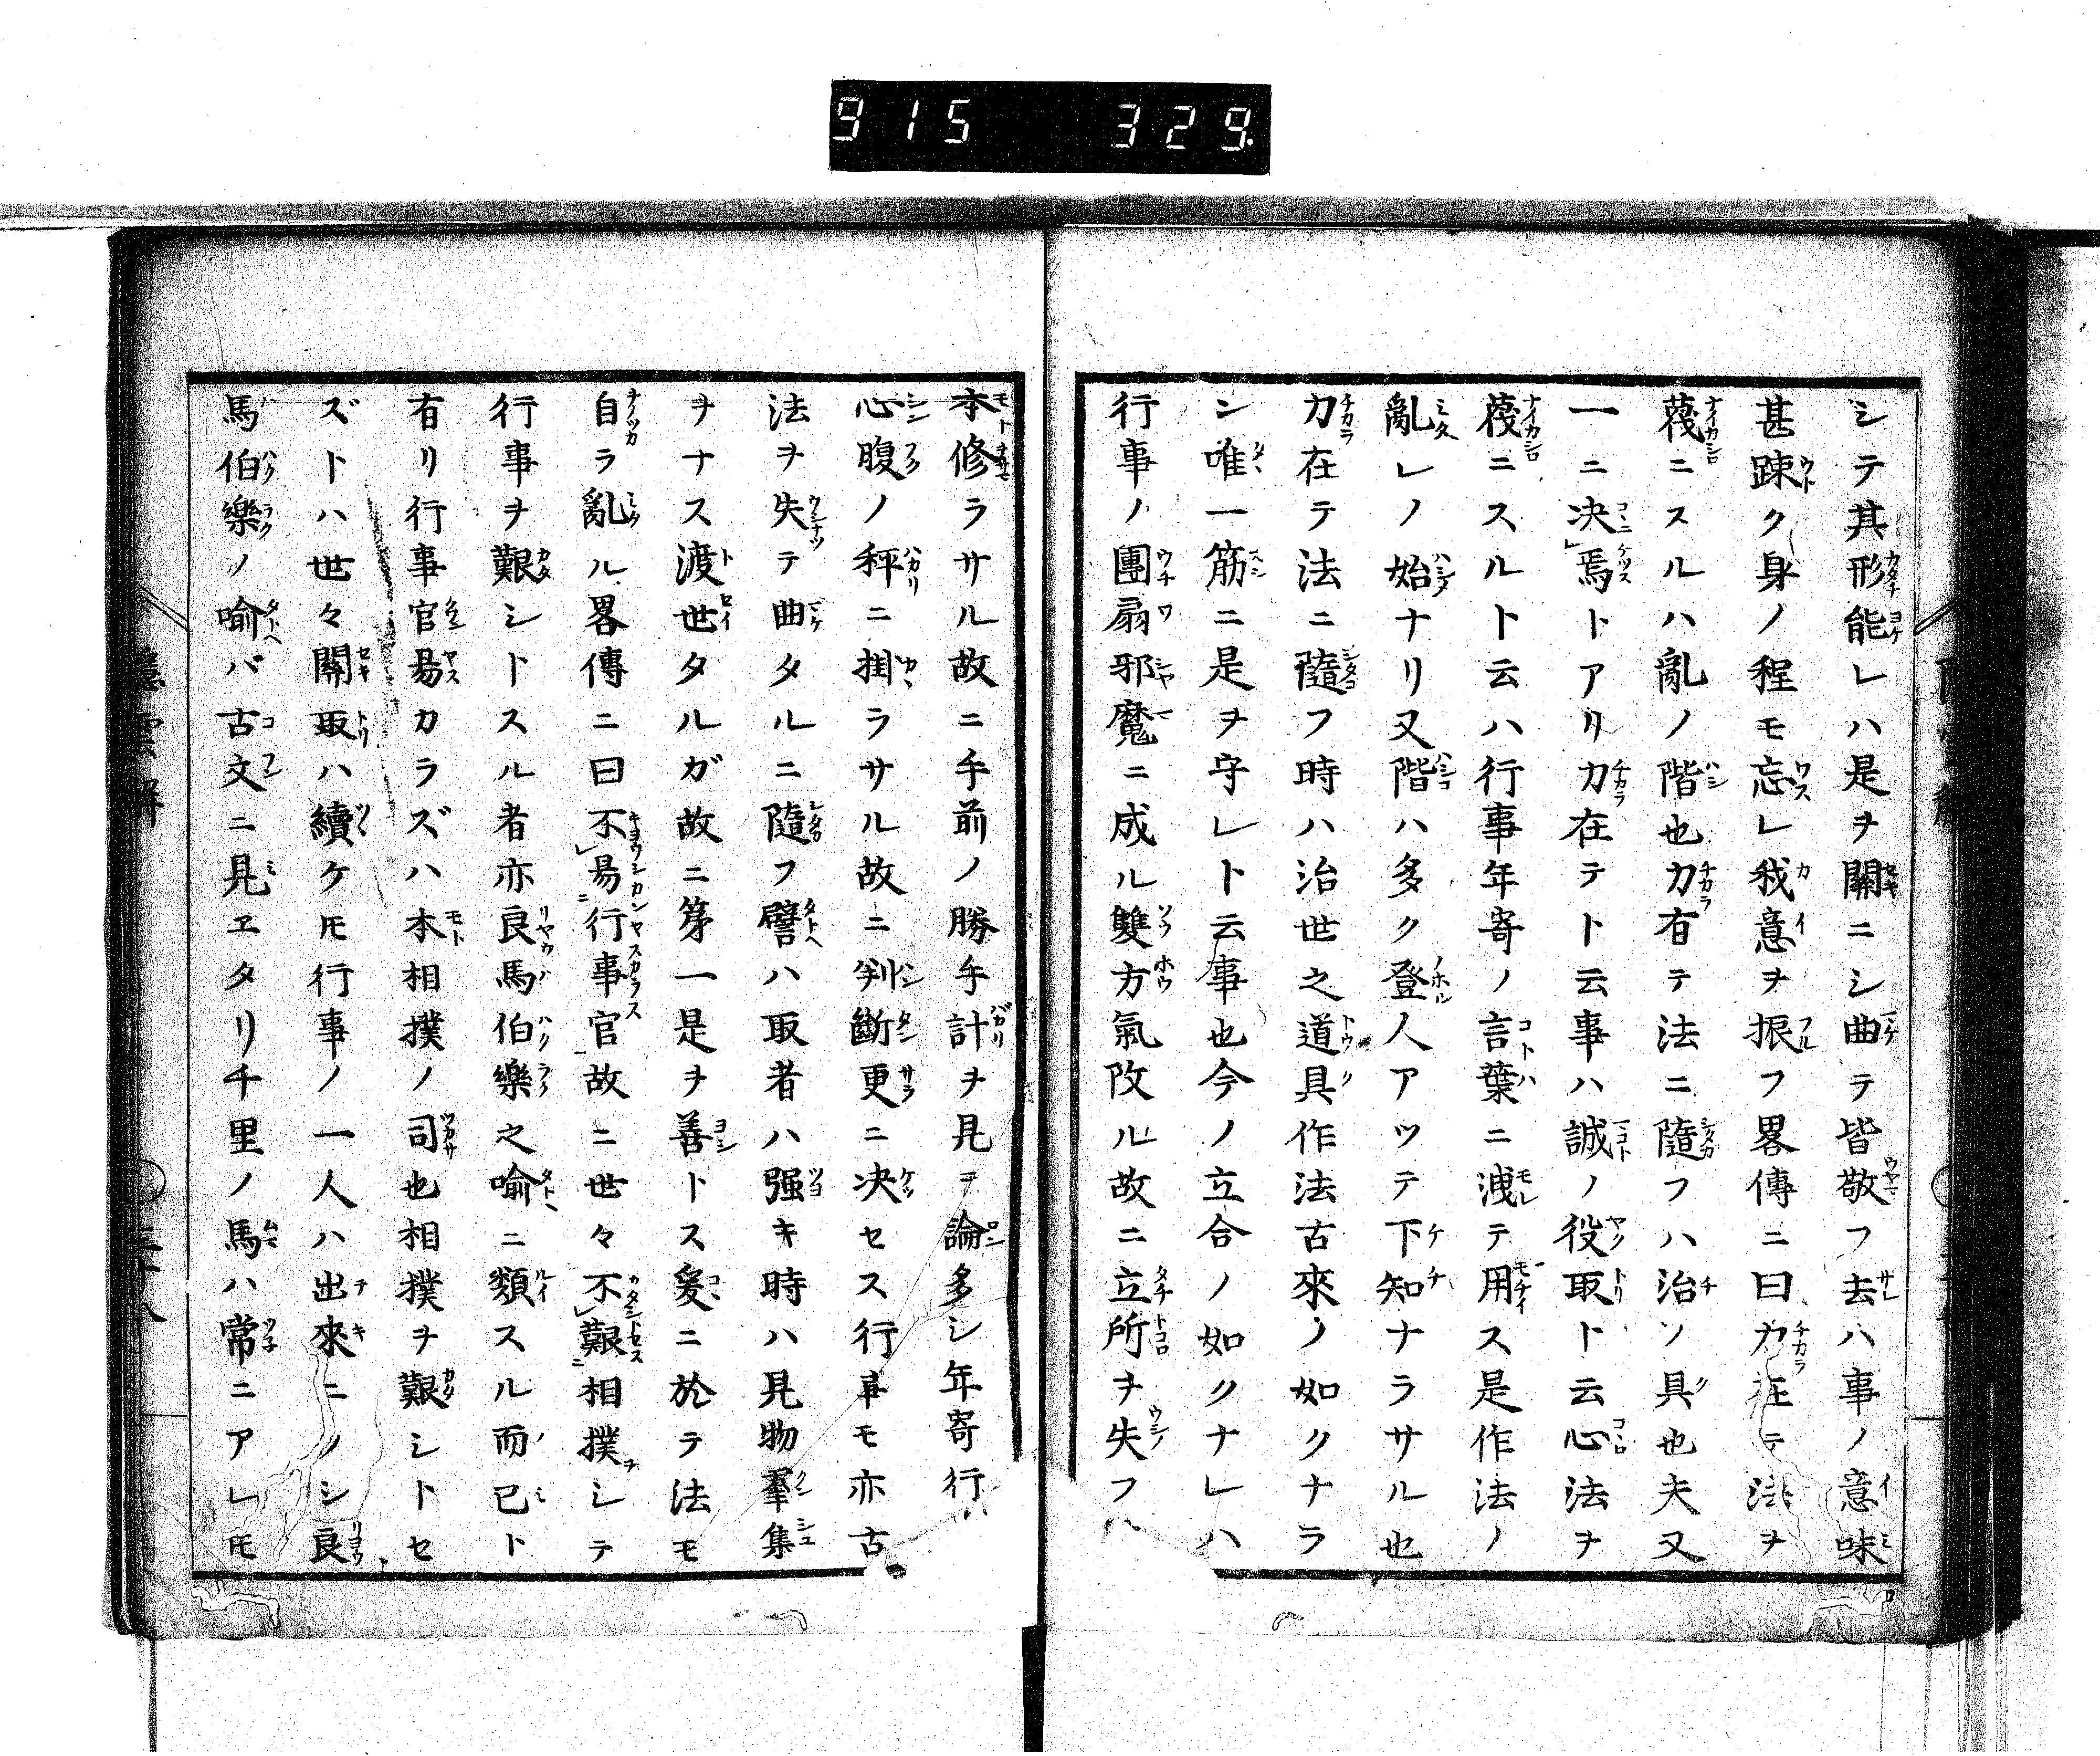 915 329
シテ其形能レハ是ヲ關ニシ曲テ皆敬フ去ハ事ノ意味
甚踈ク身ノ程モ忘レ我意ヲ振フ畧傳ニ曰力在テ法ヲ
蔑ニスルハ亂ノ階也力有テ法ニ隨フハ治ソ具也夫又
一ニ决焉トアリ力在テト云事ハ誠ノ役取ト云心法ヲ
蔑ニスルト云ハ行事年寄ノ言葉ニ洩テ用ス是作法ノ
亂レノ始ナリ又階ハ多ク登人アツテ下知ナラサル也
力在テ法ニ隨フ時ハ治世之道具作法古來ノ如クナラ
ン唯一筋ニ是ヲ守レト云事也今ノ立合ノ如クナレハ
行事ノ團扇邪魔ニ成ル雙方氣攺ル故ニ立所ヲ失フ
本修ラサル故ニ手前ノ勝手計ヲ見ヲ論多シ年寄行
心腹ノ秤ニ掛ラサル故ニ判斷更ニ决セス行事モ亦古
法ヲ失テ曲タルニ隨フ譬ハ取者ハ强キ時ハ見物羣集
ヲナス渡世タルガ故ニ第一是ヲ善トス爰ニ於テ法モ
自ラ亂ル畧傳ニ曰不易行事官故ニ世々不艱相撲シテ
行事ヲ艱シトスル者亦良馬伯樂之喻ニ類スル而已ト
有リ行事官易カラズハ本相撲ノ司也相撲ヲ艱シトセ
ズトハ世々關取ハ續ケ𪜈行事ノ一人ハ出來ニノシ良
馬伯樂ノ喻バ古文ニ見ヱタリ千里ノ馬ハ常ニアレ𪜈